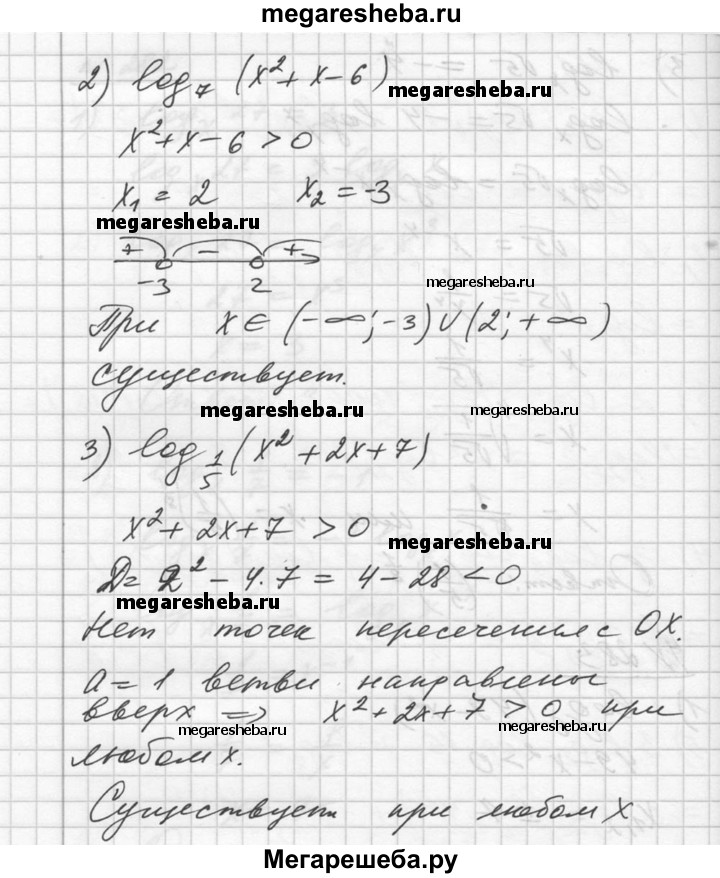 megaresheba.ru
2) log₇ (x² + x − 6)
megaresheba.ru
x² + x − 6 > 0
x₁ = 2 x₂ = −3
megaresheba.ru
+ − +
−3 2
megaresheba.ru
При x ∈ (−∞; −3) ∪ (2; +∞)
существует.
megaresheba.ru megaresheba.ru
3) log₁/₅ (x² + 2x + 7)
x² + 2x + 7 > 0
megaresheba.ru
D = 2² − 4·7 = 4 − 28 < 0
megaresheba.ru
Нет точек пересечения с OX.
a = 1 ветви направлены
вверх => x² + 2x + 7 > 0 при
megaresheba.ru megaresheba.ru
любом x.
Существует при любом x
Мегарешеба.ру